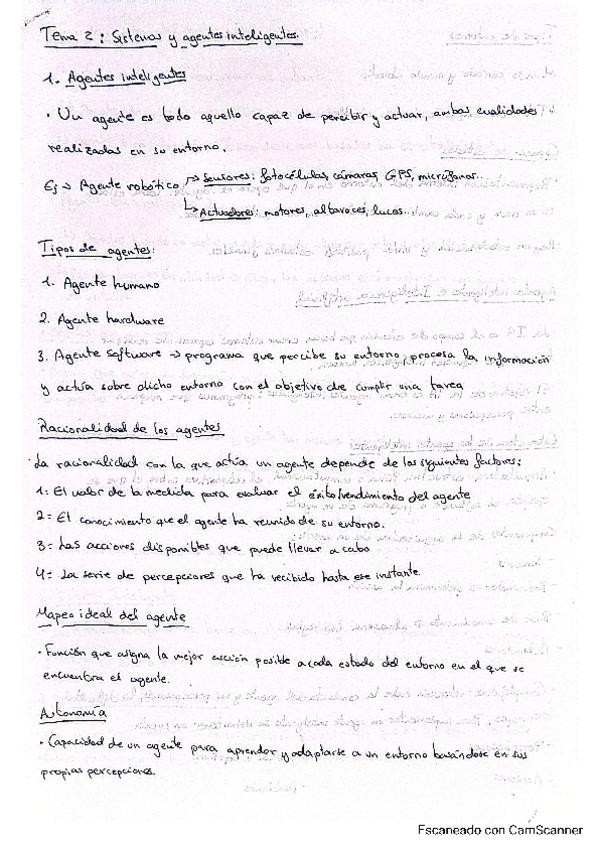 Tema 2: Sistemas y agentes inteligentes.
1. Agentes inteligentes
· Un agente es todo aquello capaz de percibir y actuar, ambas cualidades
realizadas en su entorno.
Ej → Agente robótico → Sensores: fotocélulas, cámaras, GPS, micrófonos...
↳ Actuadores: motores, altavoces, luces...
Tipos de agentes:
1. Agente humano
2. Agente hardware
3. Agente software → programa que percibe su entorno, procesa la información
y actúa sobre dicho entorno con el objetivo de cumplir una tarea
Racionalidad de los agentes
· La racionalidad con la que actúa un agente depende de los siguientes factores:
1= El valor de la medida para evaluar el éxito/rendimiento del agente
2= El conocimiento que el agente ha reunido de su entorno.
3= Las acciones disponibles que puede llevar a cabo
4= La serie de percepciones que ha recibido hasta ese instante.
Mapeo ideal del agente
· Función que asigna la mejor acción posible a cada estado del entorno en el que se
encuentra el agente.
Autonomía
· Capacidad de un agente para aprender y adaptarse a un entorno basándose en sus
propias percepciones.
Escaneado con CamScanner